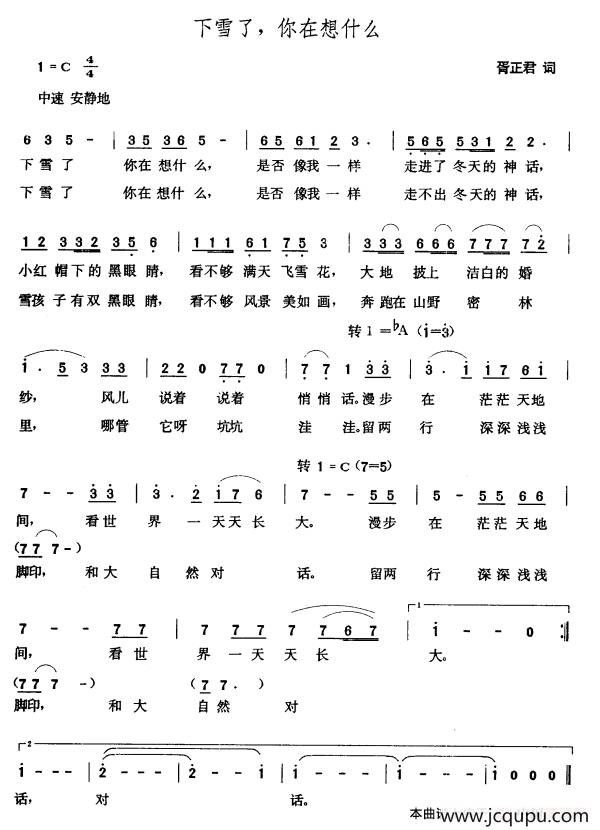 下雪了，你在想什么
1=C 4/4
胥正君 词
中速 安静地
6 3 5 - | 3 5 3 6 5 - | 6 5 6 1 2 3 . | 5 6 5 5 3 1 2 2 . |
下雪了 你在想什么, 是否 像我一样 走进了 冬天的 神话,
下雪了 你在想什么, 是否 像我一样 走不出 冬天的 神话,
1 2 3 3 2 3 3 5 6 | 1 1 1 6 1 7 5 3 | 3 3 3 6 6 6 7 7 7 7 2 |
小红 帽下的 黑眼 睛, 看不够 满天 飞雪 花, 大 地 披上 洁白的 婚
雪孩 子有双 黑眼 睛, 看不够 风景 美如 画, 奔 跑在 山野 密 林
转 1=bA (i=3)
i . 5 3 3 3 | 2 2 0 7 7 0 | 7 7 1 3 3 | 3 . i i 7 6 i |
纱, 风儿 说着 说着 悄悄 话.漫步 在 茫茫 天地
里, 哪管 它呀 坑坑 洼 洼.留两 行 深深 浅浅
转 1=C (7=5)
7 - - 3 3 | 3 . 2 i 7 6 | 7 - - 5 5 | 5 - 5 5 6 6 |
间, 看世 界 一 天天 长 大。 漫步 在 茫茫 天地
(7 7 7 -)
脚印, 和大 自 然 对 话. 留两 行 深深 浅浅
7 - - 7 7 | 7 7 7 7 6 7 | 1 i - - 0 :||
间, 看世 界 一 天 天 长 大.
(7 7 7 - -) (7 7 .)
脚印, 和大 自然 对
2 i - - - | 2 - - 2 | 2 - 2 - i | i - - - | i - - - | i 0 0 0 ||
话, 对 话.
本曲
www.jcqupu.com